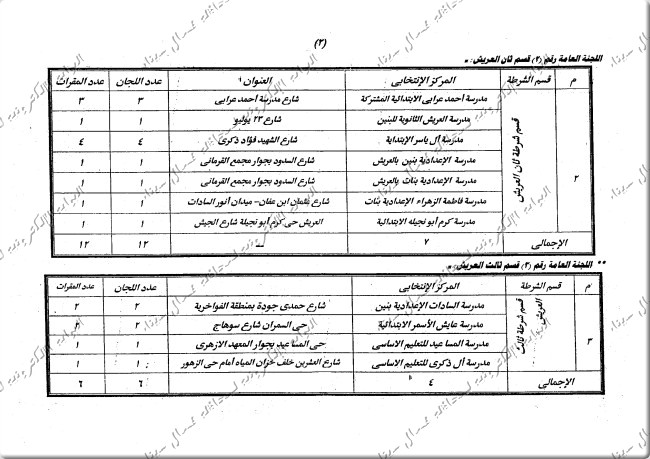 (٢)
اللجنة العامة رقم (٢) قسم ثان العريش :-
م قسم الشرطة المركز الإنتخابى العنوان عدد اللجان عدد المقرات
٢ قسم شرطة ثان العريش
مدرسة أحمد عرابى الابتدائية المشتركة شارع مدرسة أحمد عرابى ٣ ٣
مدرسة العريش الثانوية للبنين شارع ٢٣ يوليو ١ ١
مدرسة أل ياسر الإبتداية شارع الشهيد فؤاد ذكرى ٤ ٤
مدرسة الإعدادية بنين بالعريش شارع السدود بجوار مجمع الفرمانى ١ ١
مدرسة الإعدادية بنات بالعريش شارع السدود بجوار مجمع الفرمانى ١ ١
مدرسة فاطمة الزهراء الإعدادية بنات شارع عثمان ابن عفان - ميدان أنور السادات ١ ١
مدرسة كرم أبو نجيله الابتدائية العريش حى كرم أبو نجيلة شارع الجيش ١ ١
الإجمالى ٧ — ١٢ ١٢
** اللجنة العامة رقم (٣) قسم ثالث العريش :-
م قسم الشرطة المركز الإنتخابى العنوان عدد اللجان عدد المقرات
٣ قسم شرطة ثالث العريش
مدرسة السادات الإعدادية بنين شارع حمدى جودة بمنطقة الفواخرية ٢ ٢
مدرسة عايش الأسمر الابتدائية حى السمران شارع سوهاج ٢ ٢
مدرسة المساعيد للتعليم الاساسى حى المساعيد بجوار المعهد الازهرى ١ ١
مدرسة أل ذكرى للتعليم الاساسى شارع العشرين خلف خزان المياه أمام حى الزهور ١ ١
الإجمالى ٤ ٦ ٦